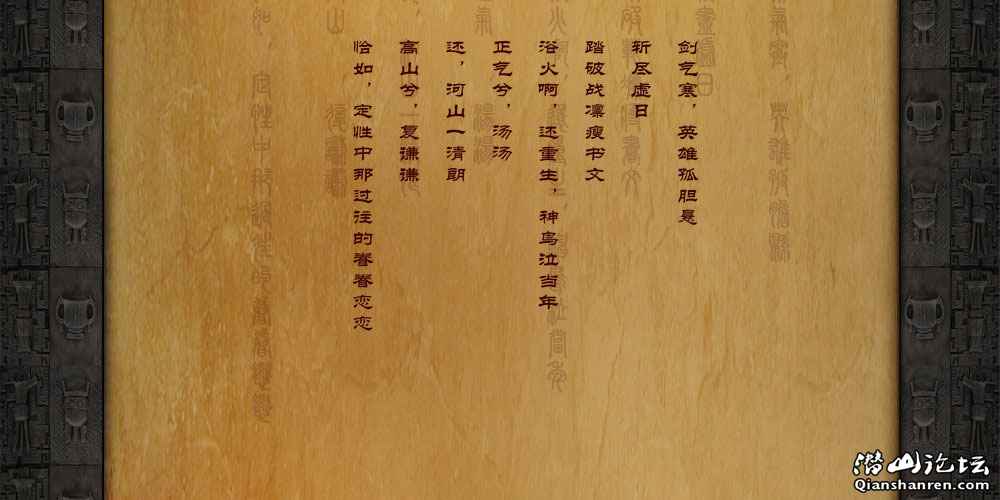 剑气寒，英雄孤胆是
斩尽虚日
踏破战凛瘦书文
浴火啊，还重生，神鸟泣当年
正气兮，汤汤
还，河山一清朗
高山兮，复谦谦
恰如，定性中那过往的眷眷恋恋
潜山论坛
Qianshanren.com